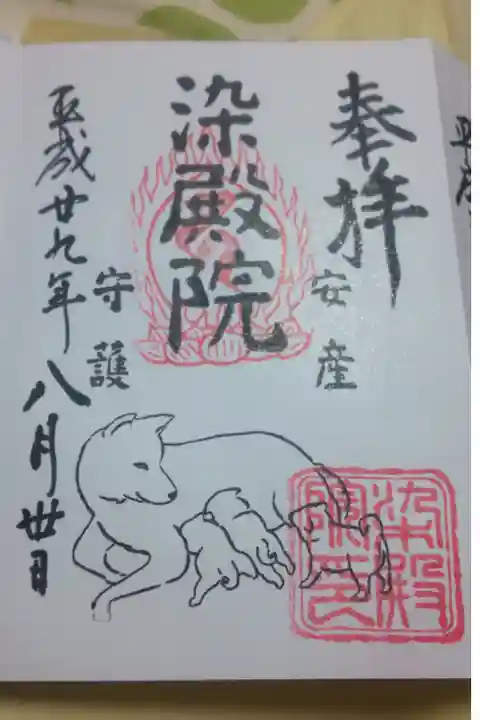 奉拝
安産
染殿院
守護
平成廿九年八月丗日
染殿